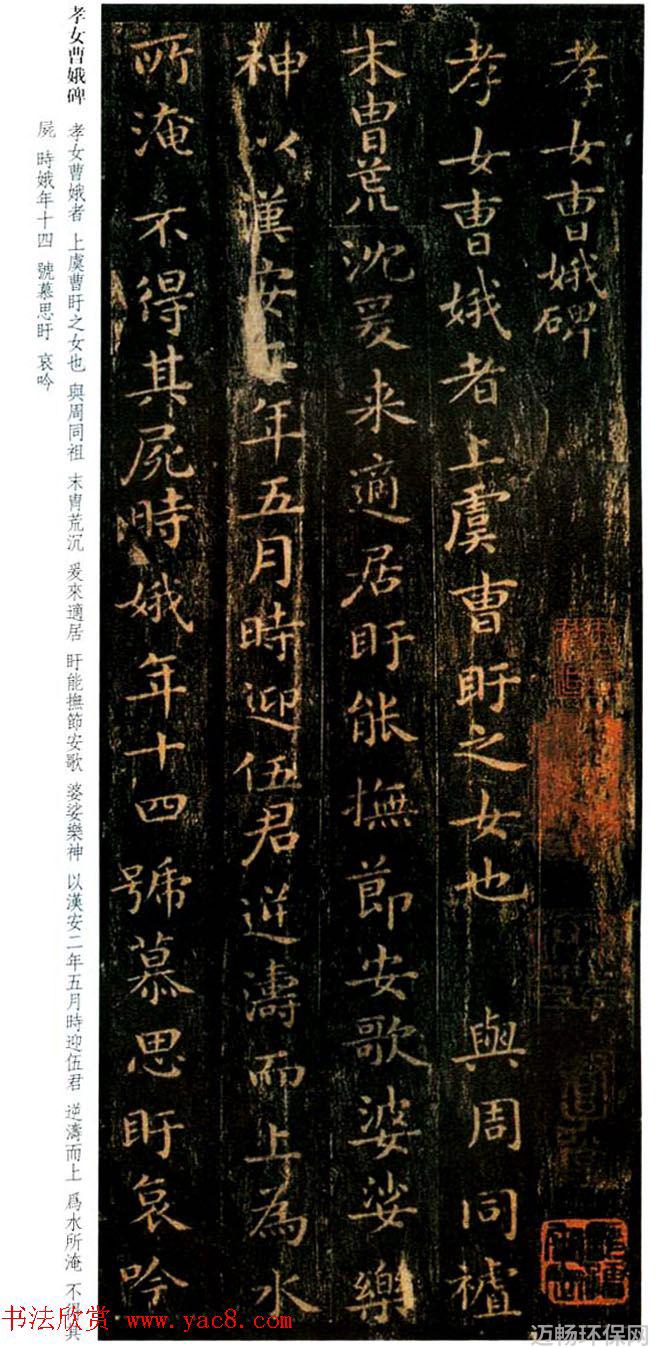 孝女曹娥碑
孝女曹娥者上虞曹盱之女也 與周同禮
末冑荒沈爰来適居盱能撫節安歌婆娑樂
神以漢安二年五月時迎伍君逆濤而上為水
所淹 不得其屍時娥年十四號慕思盱哀吟
孝女曹娥碑
孝女曹娥者 上虞曹盱之女也 與周同祖 末冑荒沉 爰來適居 盱能撫節安歌 婆娑樂神 以漢安二年五月時迎伍君 逆濤而上 爲水所淹 不得其
屍 時娥年十四 號慕思盱 哀吟
书法欣赏 www.yac8.com
迈畅环保网